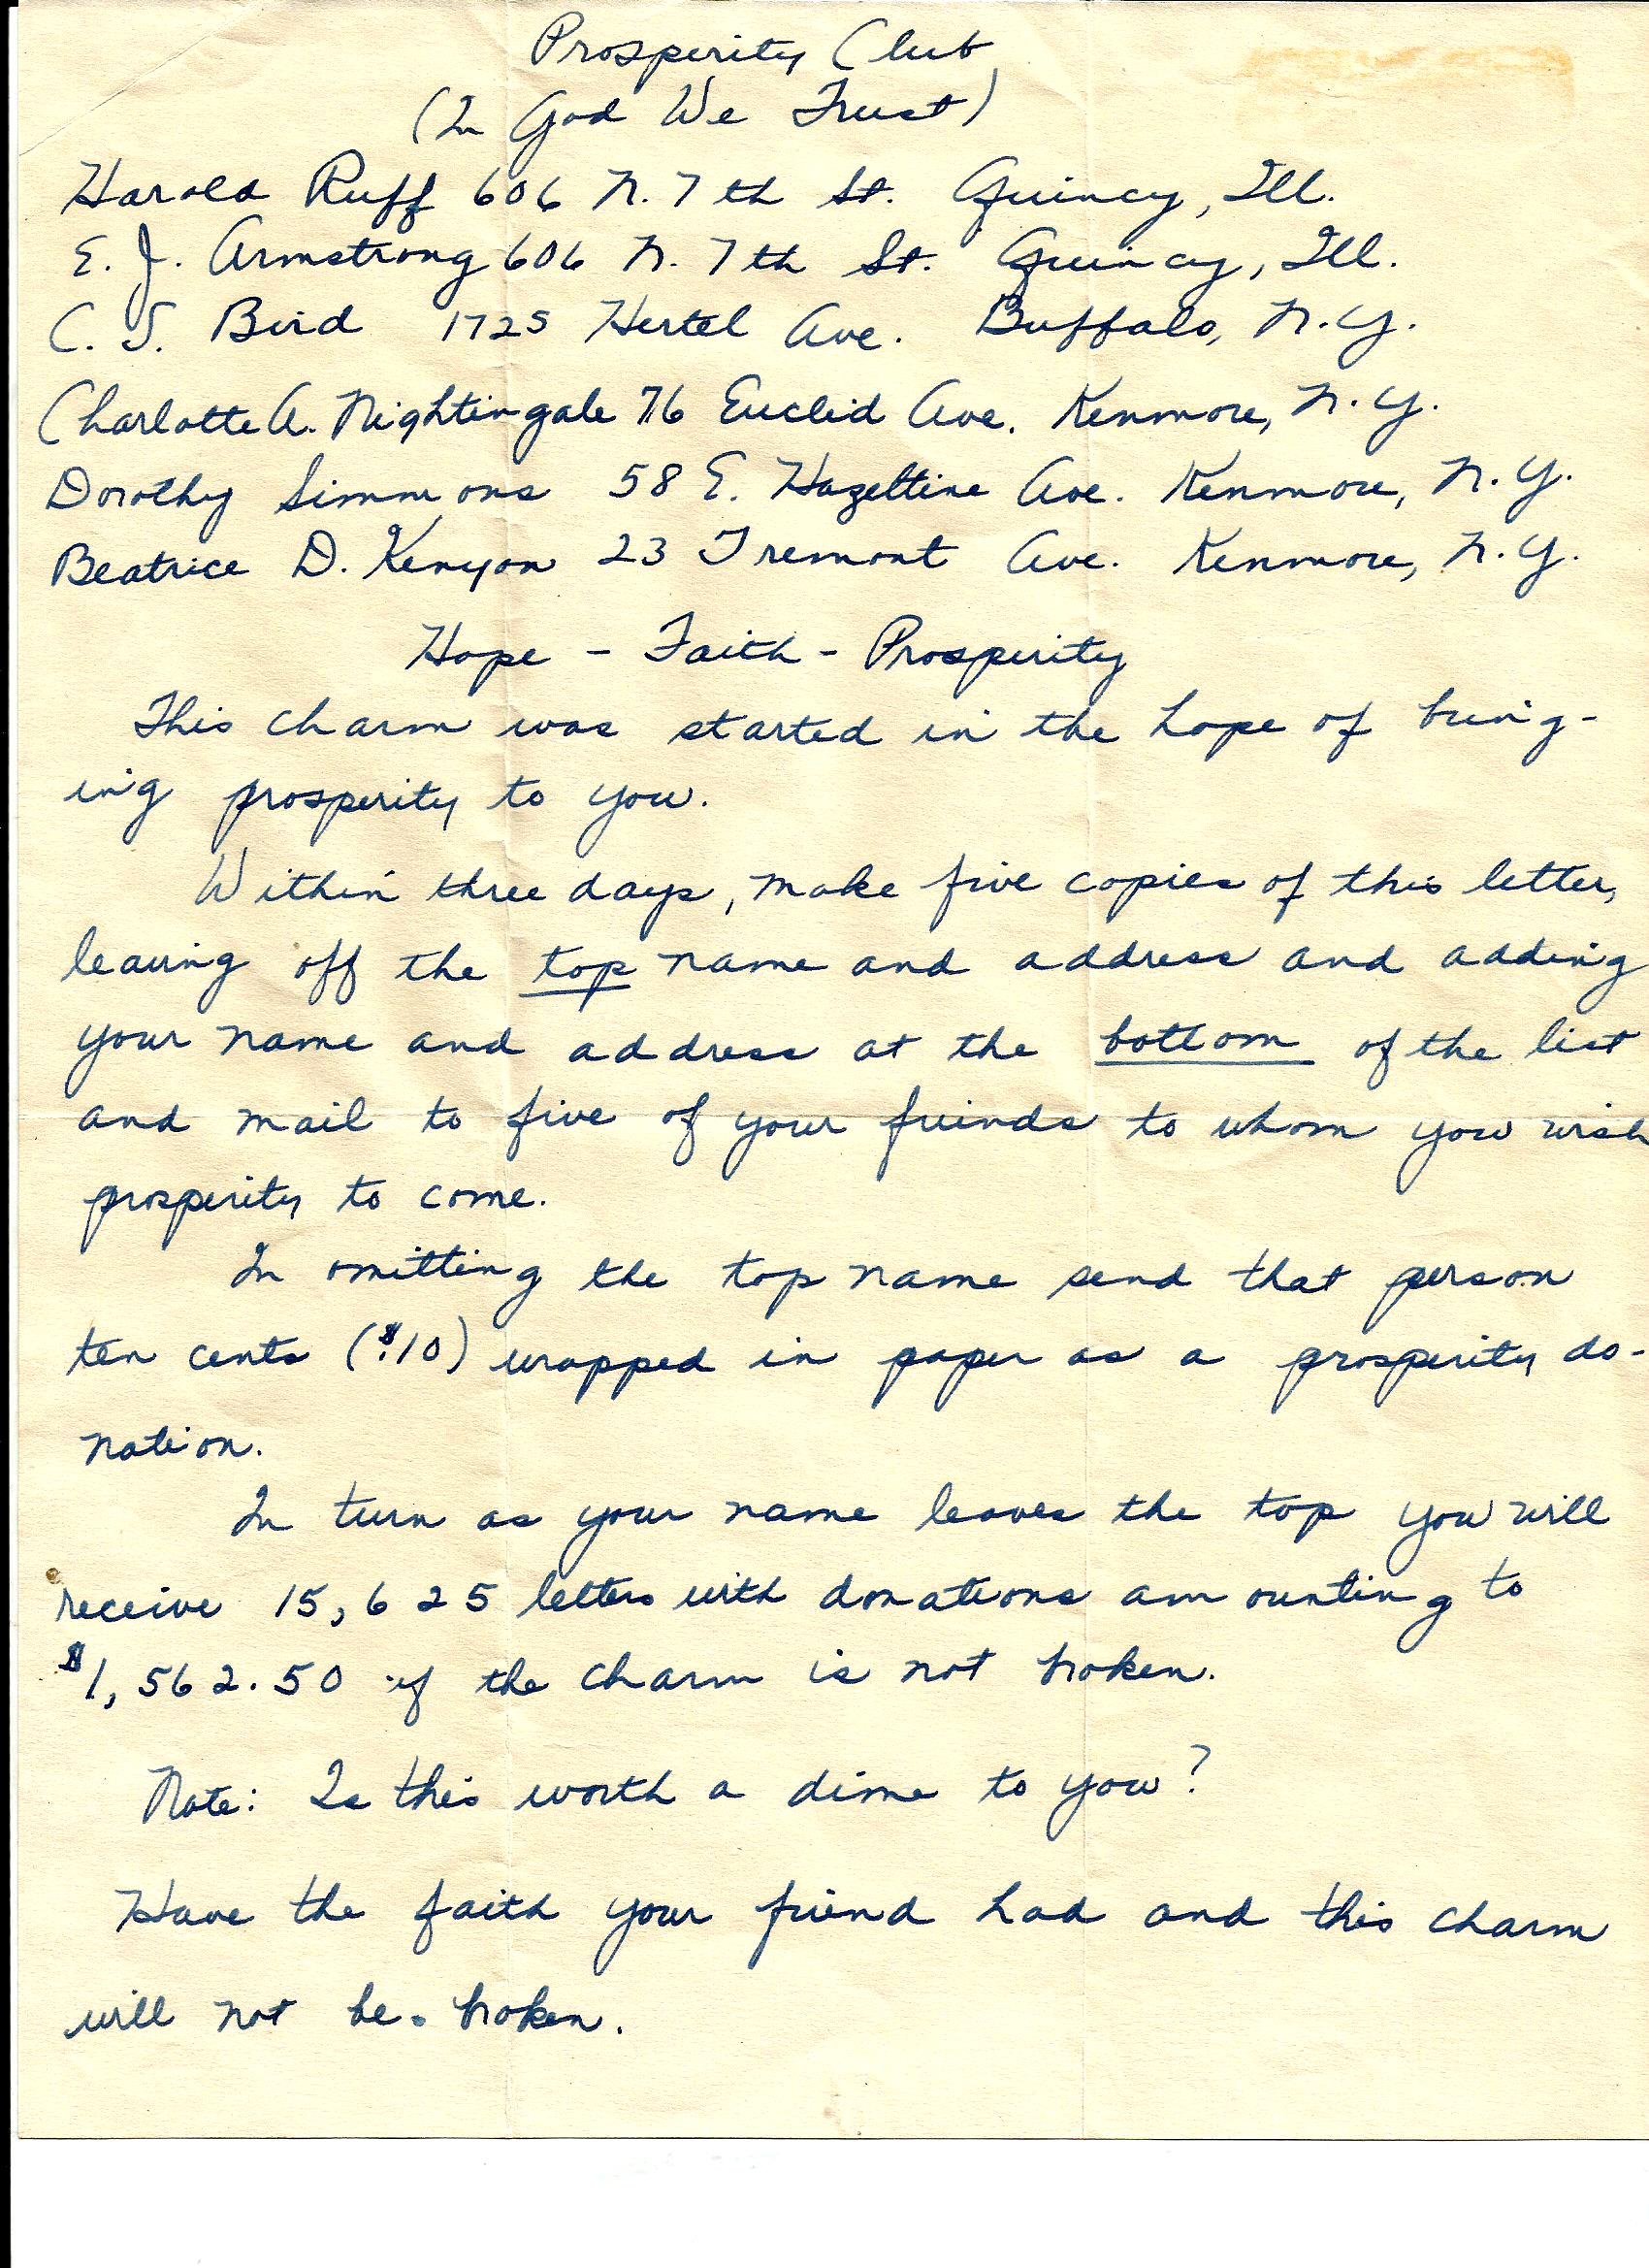 Prosperity Club
(In God We Trust)
Harold Ruff 606 N. 7th St. Quincy, Ill.
E. J. Armstrong 606 N. 7th St. Quincy, Ill.
C. S. Bird 1725 Hertel Ave. Buffalo, N.Y.
Charlotte A. Nightingale 76 Euclid Ave. Kenmore, N.Y.
Dorothy Simmons 58 E. Hazeltine Ave. Kenmore, N.Y.
Beatrice D. Kenyon 23 Tremont Ave. Kenmore, N.Y.
Hope - Faith - Prosperity
This charm was started in the hope of bring-
ing prosperity to you.
Within three days, make five copies of this letter,
leaving off the top name and address and adding
your name and address at the bottom of the list
and mail to five of your friends to whom you wish
prosperity to come.
In omitting the top name send that person
ten cents ($.10) wrapped in paper as a prosperity do-
nation.
In turn as your name leaves the top you will
receive 15,625 letters with donations amounting to
$1,562.50 if the charm is not broken.
Note: Is this worth a dime to you?
Have the faith your friend had and this charm
will not be broken.